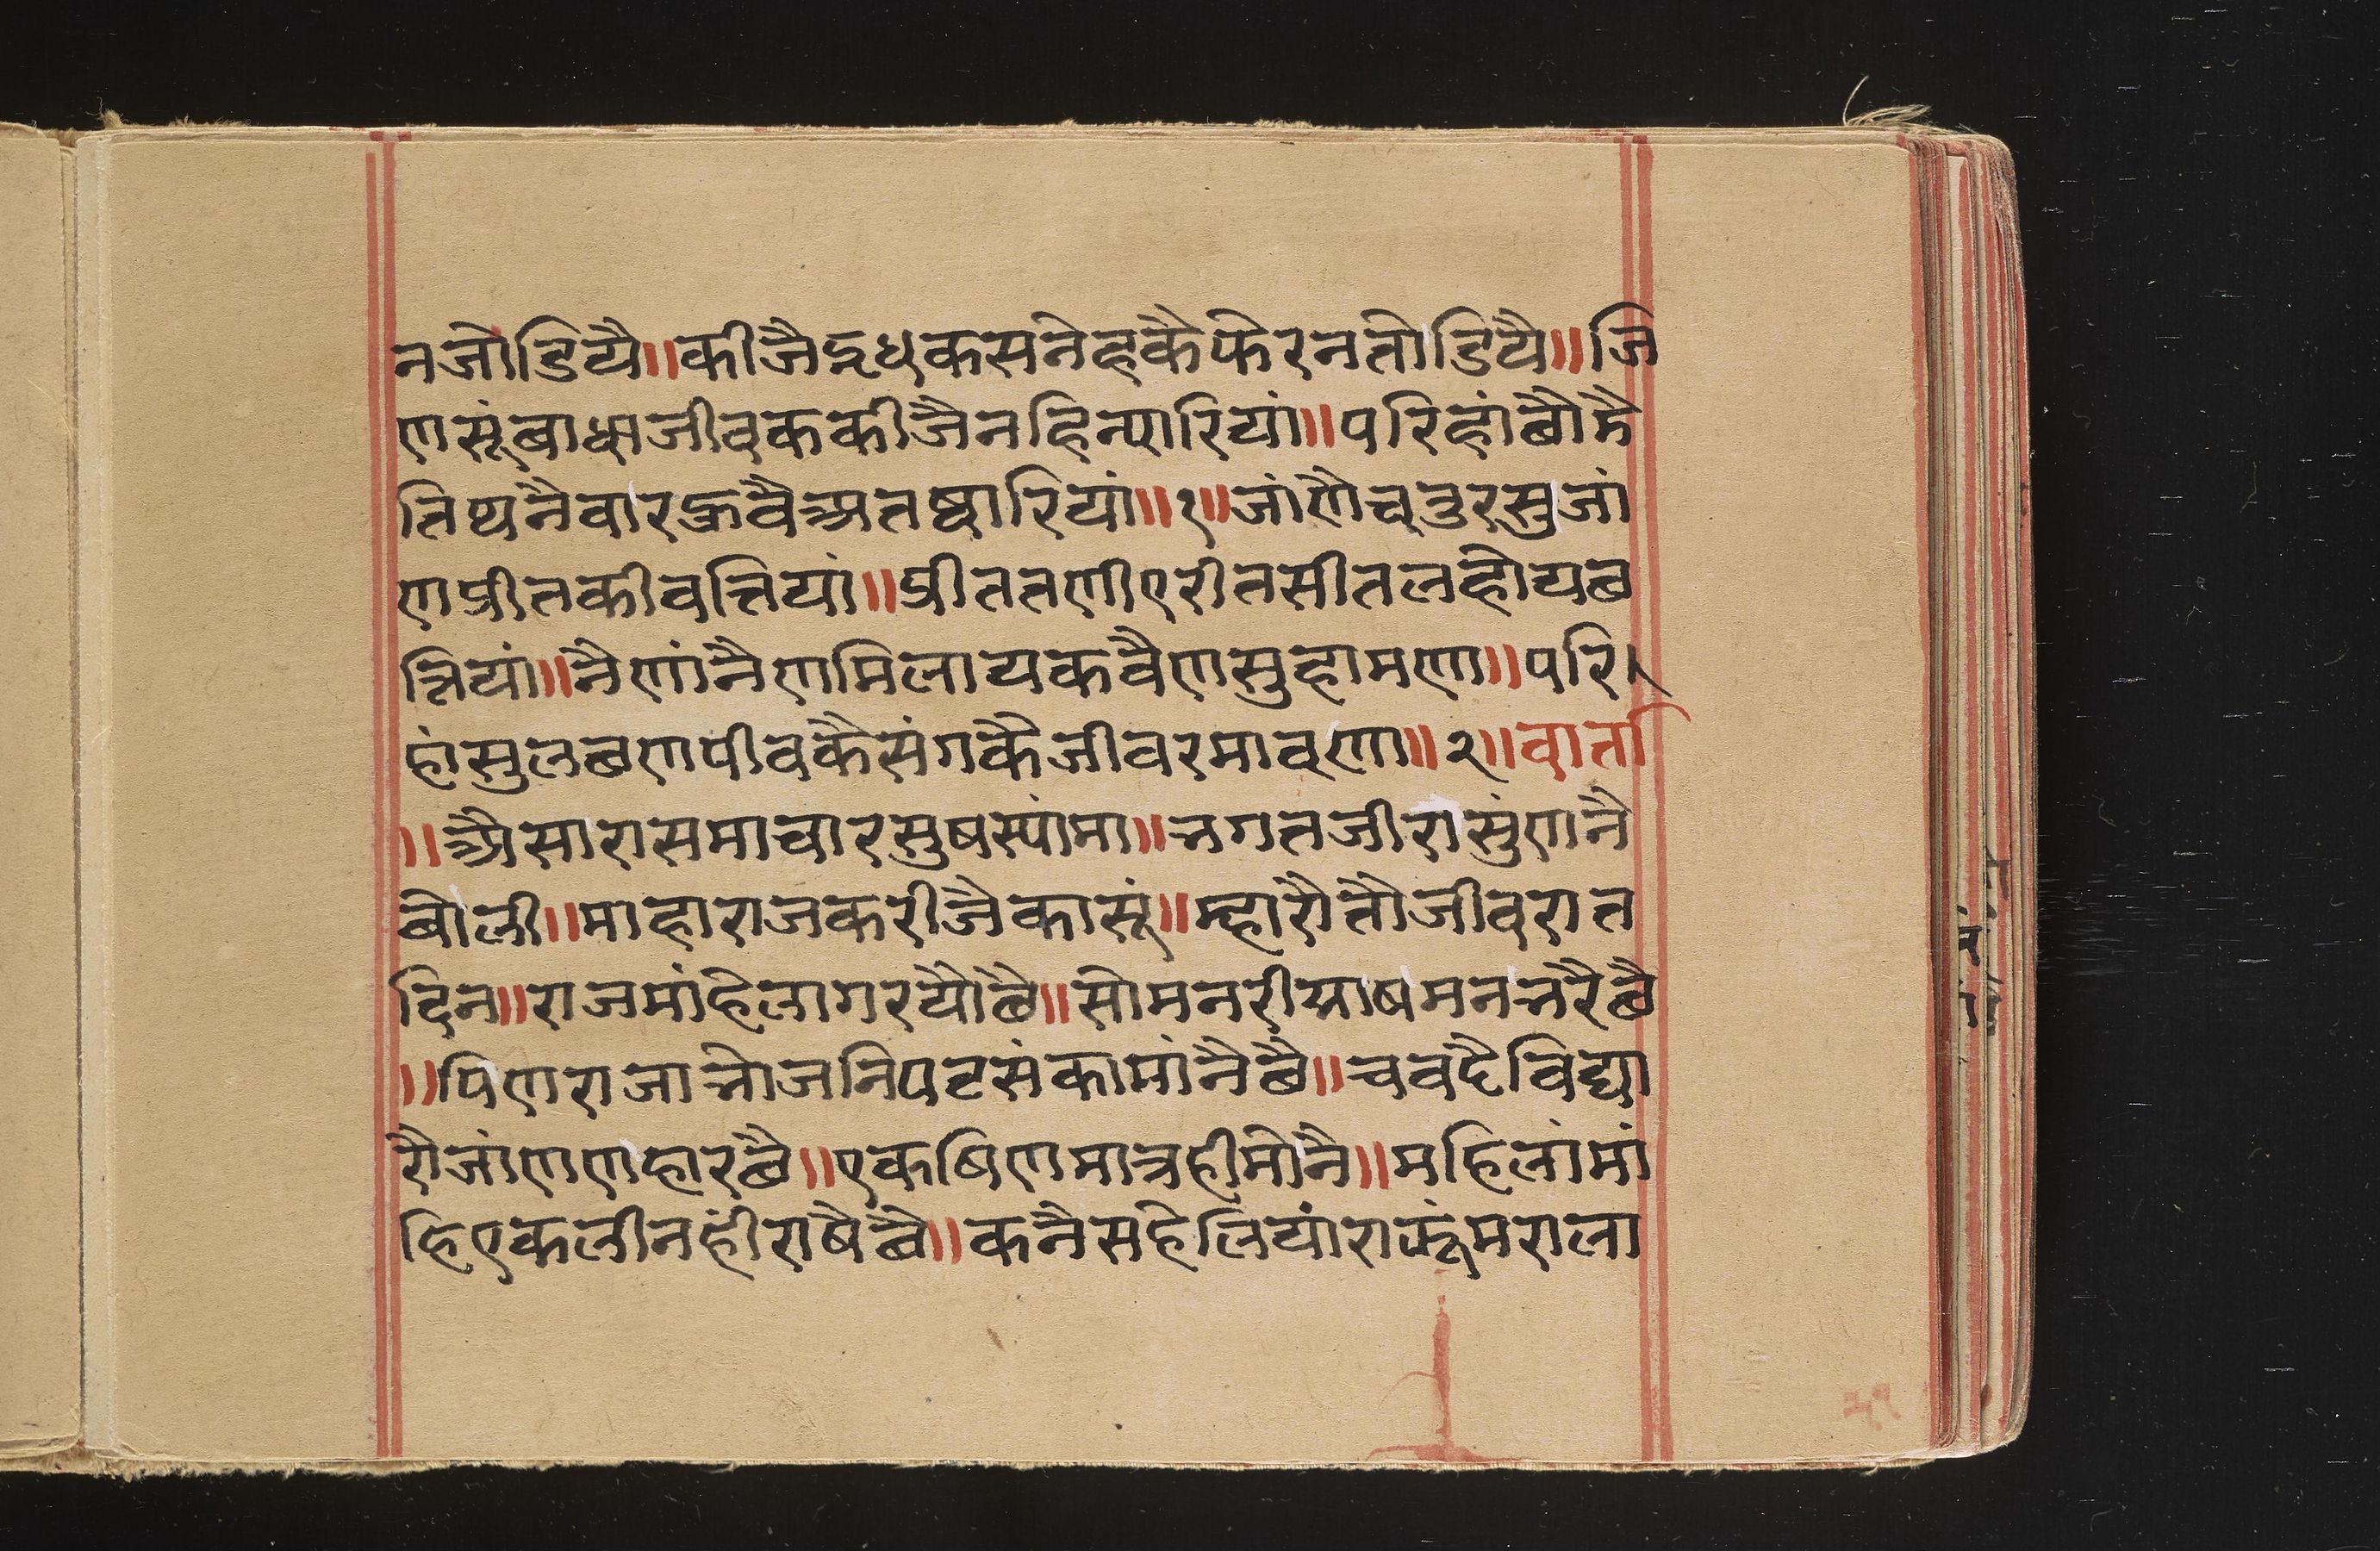 नजोडियै॥कीजैद्गधकसनेहकैफेरनतोडियै॥जि
णसूंबाधाजीवककीजैनहिन्यारियां॥परिहांबौमै
तिथनैवारफ्रवैअतष्वारियां॥१॥जांणैचतुरसुजां
णप्रीतकीवत्तियां॥प्रीततणीएरीतसीतलहोयछ
त्तियां॥नैणांनैणमिलायकवैणसुहामणा॥परि।
हांसुलछणपीवकैसंगकैजीवरमावणा॥२॥वार्ता
॥अैसारासमाचारसुषस्यांमा॥नगतजीरासुंणनै
बोली॥माहाराजकरीजैकासूं॥म्हारौतौजीवरात
दिन॥राजमांहेलागरयौछै॥सोमनरीसाषमनन्नरैछै
॥पिणराजान्नोजनिपटसंकामांनैछै॥चवदैविद्या
रौजांणणहारछै॥एकषिणमात्रहीमोनै॥महिलांमां
हिएकलीनहींराषैछै॥कनैसहेलियांराफूंमराला